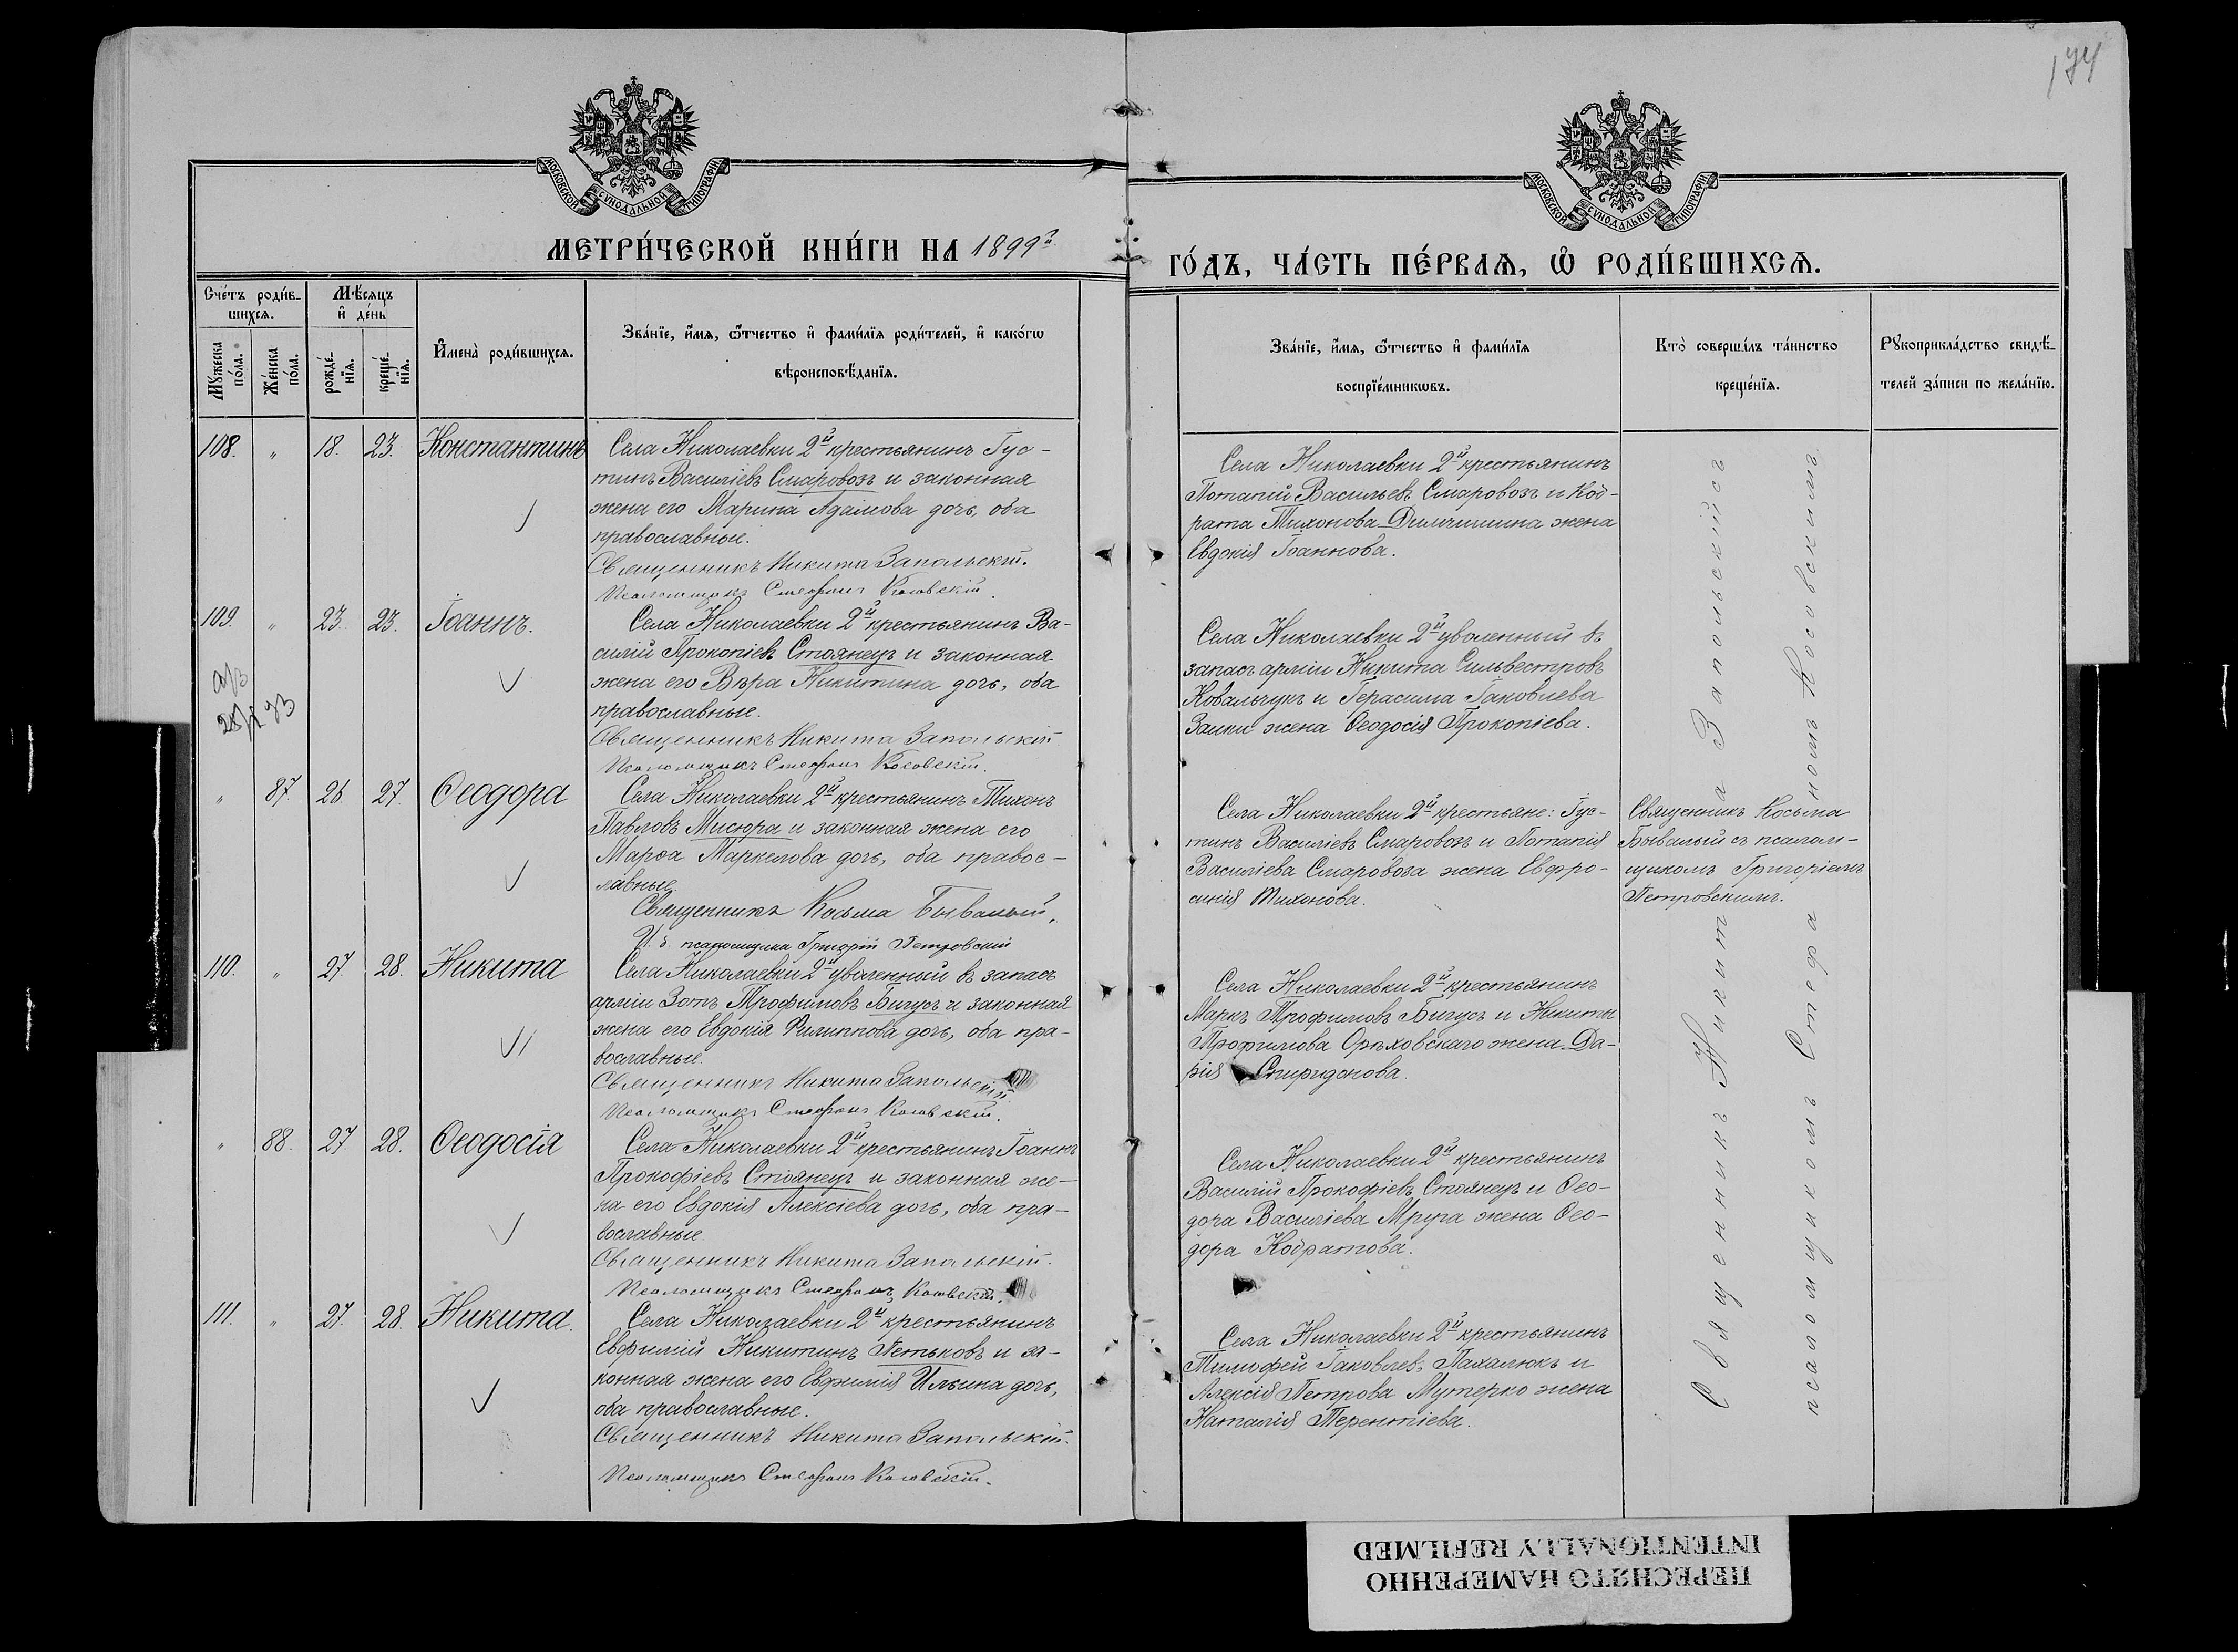 174
МОСКОВСКОЙ СѴНОДАЛЬНОЙ ТИПОГРАФІИ
МОСКОВСКОЙ СѴНОДАЛЬНОЙ ТИПОГРАФІИ
МЕТРИ́ЧЕСКОЙ КНИ́ГИ НА 1899й
ГО́ДЪ, ЧА́СТЬ ПЕ́РВАѦ, Ѽ РОДИ́ВШИХСѦ.
Сче́тъ роди́в-
шихсѧ.
Мѣ́сѧцъ
и҆ де́нь
Мꙋ́жеска
по́ла.
Же́нска
по́ла.
рожде́-
нїѧ.
креще́-
нїѧ.
И҆мена̀ роди́вшихсѧ.
Зва́нїе, и҆́мѧ, ѻ҆́тчество и҆ фами́лїѧ роди́телей, и҆ како́гѡ
вѣроисповѣ́данїѧ.
Зва́нїе, и҆́мѧ, ѻ҆́тчество и҆ фами́лїѧ
воспрїе́мникѡвъ.
Кто̀ соверша́лъ та́инство
креще́нїѧ.
Рꙋкоприкла́дство свидѣ́-
телей за́писи по жела́нїю.
108. " 18. 23. Константинъ
Села Николаевки 2й крестьянинъ Іус-
тинъ Василіевъ Смаровозъ и законная
жена его Марина Адамова дочь, оба
православные.
Священникъ Никита Запольскій.
Псаломщикъ Стефанъ Косовскій.
Села Николаевки 2й крестьянинъ
Потапій Васильевъ Смаровозъ и Код-
рата Тихонова Димчишина жена
Евдокія Іоаннова.
109. " 23. 23. Іоаннъ.
Села Николаевки 2й крестьянинъ Ва-
силій Прокопіевъ Стоянецъ и законная
жена его Вѣра Никитина дочь, оба
православные.
Священникъ Никита Запольскій
Псаломщикъ Стефанъ Косовскій.
Села Николаевки 2й уволенный въ
запасъ арміи Никита Сильвестровъ
Ковальчукъ и Герасима Іаковлева
Заики жена Ѳеодосія Прокопіева.
" 87. 26 27. Ѳеодора
Села Николаевки 2й крестьянинъ Тихонъ
Павловъ Мисюра и законная жена его
Марѳа Маркелова дочь, оба правос-
лавные.
Священникъ Косьма Бывалый.
И. д. псаломщика Григорій Петровскій
Села Николаевки 2й крестьяне: Іус-
тинъ Василіевъ Смаровозъ и Потапія
Василіева Смаровоза жена Евфро-
синія Тихонова.
Священникъ Косьма
Бывалый съ псалом-
щикомъ Григоріемъ
Петровскимъ.
110. " 27 28. Никита
Села Николаевки 2й уволенный въ запасъ
арміи Зотъ Трофимовъ Бигусъ и законная
жена его Евдокія Филиппова дочь, оба пра-
вославные.
Священникъ Никита Запольскій
Псаломщикъ Стефанъ Косовскій.
Села Николаевки 2й крестьянинъ
Маркъ Трофимовъ Бигусъ и Никиты
Трофимова Орѣховскаго жена Да-
рія Спиридонова.
" 88. 27 28. Ѳеодосія
Села Николаевки 2й крестьянинъ Іоаннъ
Прокофіевъ Стоянецъ и законная же-
на его Евдокія Алексіева дочь, оба пра-
вославные.
Священникъ Никита Запольскій.
Псаломщикъ Стефанъ Косовскій.
Села Николаевки 2й крестьянинъ
Василій Прокофіевъ Стоянецъ и Ѳео-
дора Василіева Мруга жена Ѳео-
дора Кодратова.
111. " 27. 28. Никита.
Села Николаевки 2й крестьянинъ
Евфимій Никитинъ Петьковъ и за-
конная жена его Евфимія Ильина дочь,
оба православные.
Священникъ Никита Запольскій.
Псаломщикъ Стефанъ Косовскій.
Села Николаевки 2й крестьянинъ
Тимофей Іаковлевъ Пахалюкъ и
Алексія Петрова Мутерко жена
Наталія Терентіева.
Священникъ Никита Запольскій съ
псаломщикомъ Стефаномъ Косовскимъ.
ПЕРЕСНЯТО НАМЕРЕННО
INTENTIONALLY REFILMED